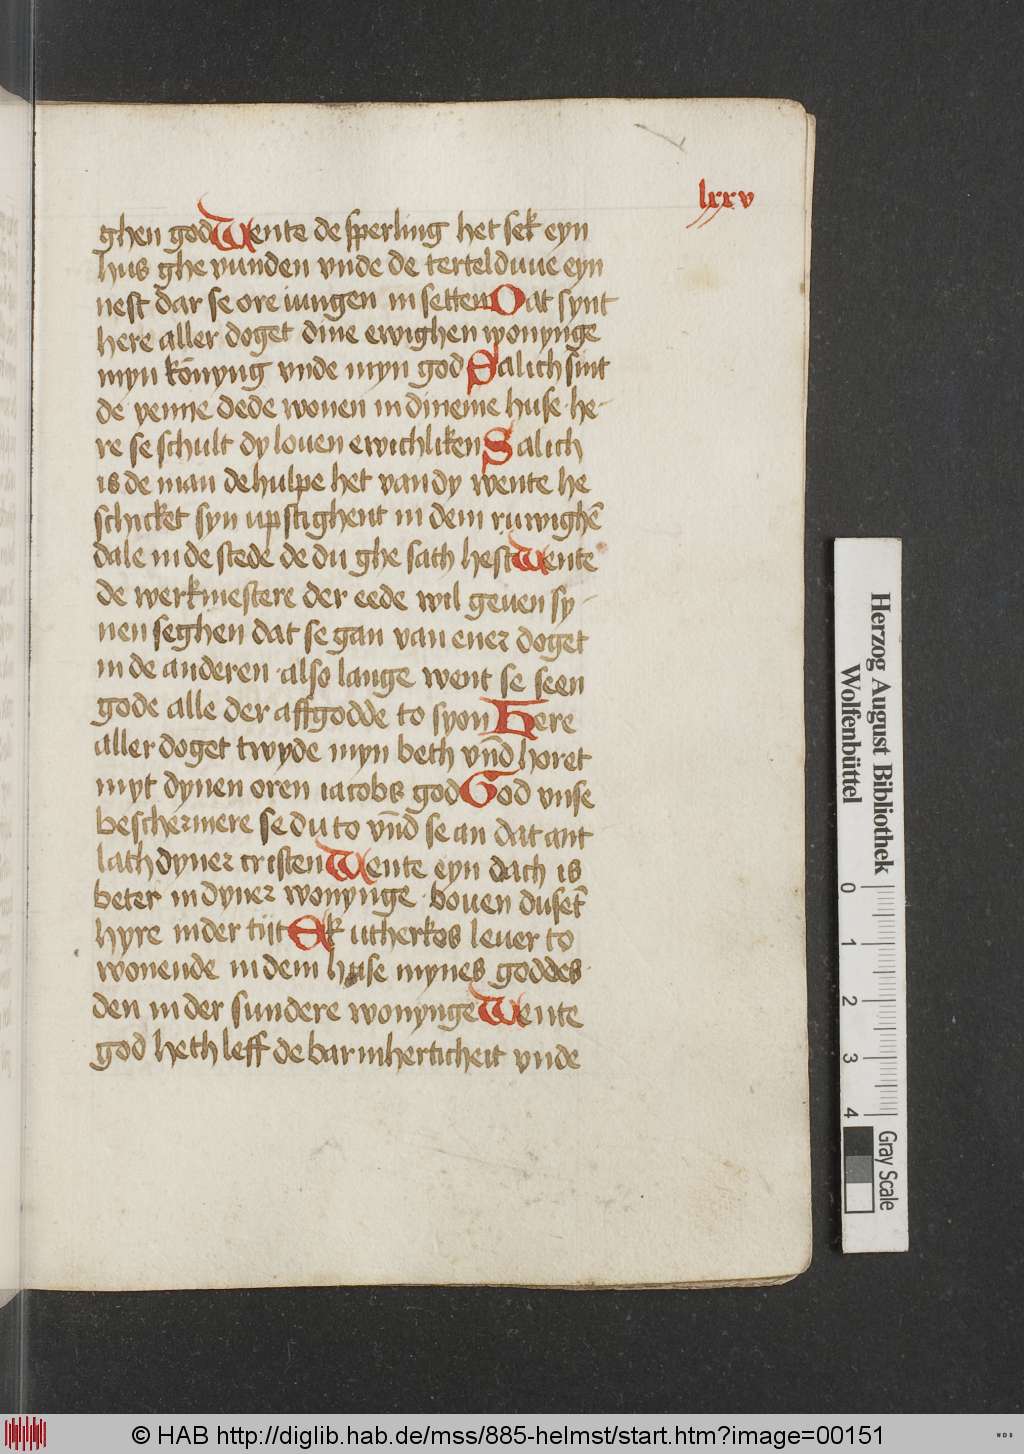 lxxv
ghen god Wente de sperling het sek eyn
hus ghe vunden vnde de tertelduue eyn
nest dar se ore iungen in setten Dat synt
here aller doget dine ewighen wonynge
myn könyng vnde myn god Salich sint
de yenne dede wonen in dineme huse he-
re se schult dy louen ewichliken Salich
is de man de hulpe het van dy wente he
schicket syn upstighent in dem ruwighē
dale in de stede de du ghe sath hest Wente
de werkmestere der eede wil geuen sy-
nen seghen dat se gan van ener doget
in de anderen also lange went se seen
gode alle der affgodde to syon Here
aller doget twyde myn beth vn̄d horet
myt dynen oren iacobs god God vnse
beschermere se du to vn̄d se an dat ant
lath dyner cristen Wente eyn dach is
beter in dyner wonynge bouen dusēt
hyre in der tijt Ek utherkos leuer to
wonende in dem huse mynes goddes
den in der sundere wonynge Wente
god heth leff de barmherticheit vnde
Herzog August Bibliothek
Wolfenbüttel
0 1 2 3 4
Gray Scale
© HAB http://diglib.hab.de/mss/885-helmst/start.htm?image=00151